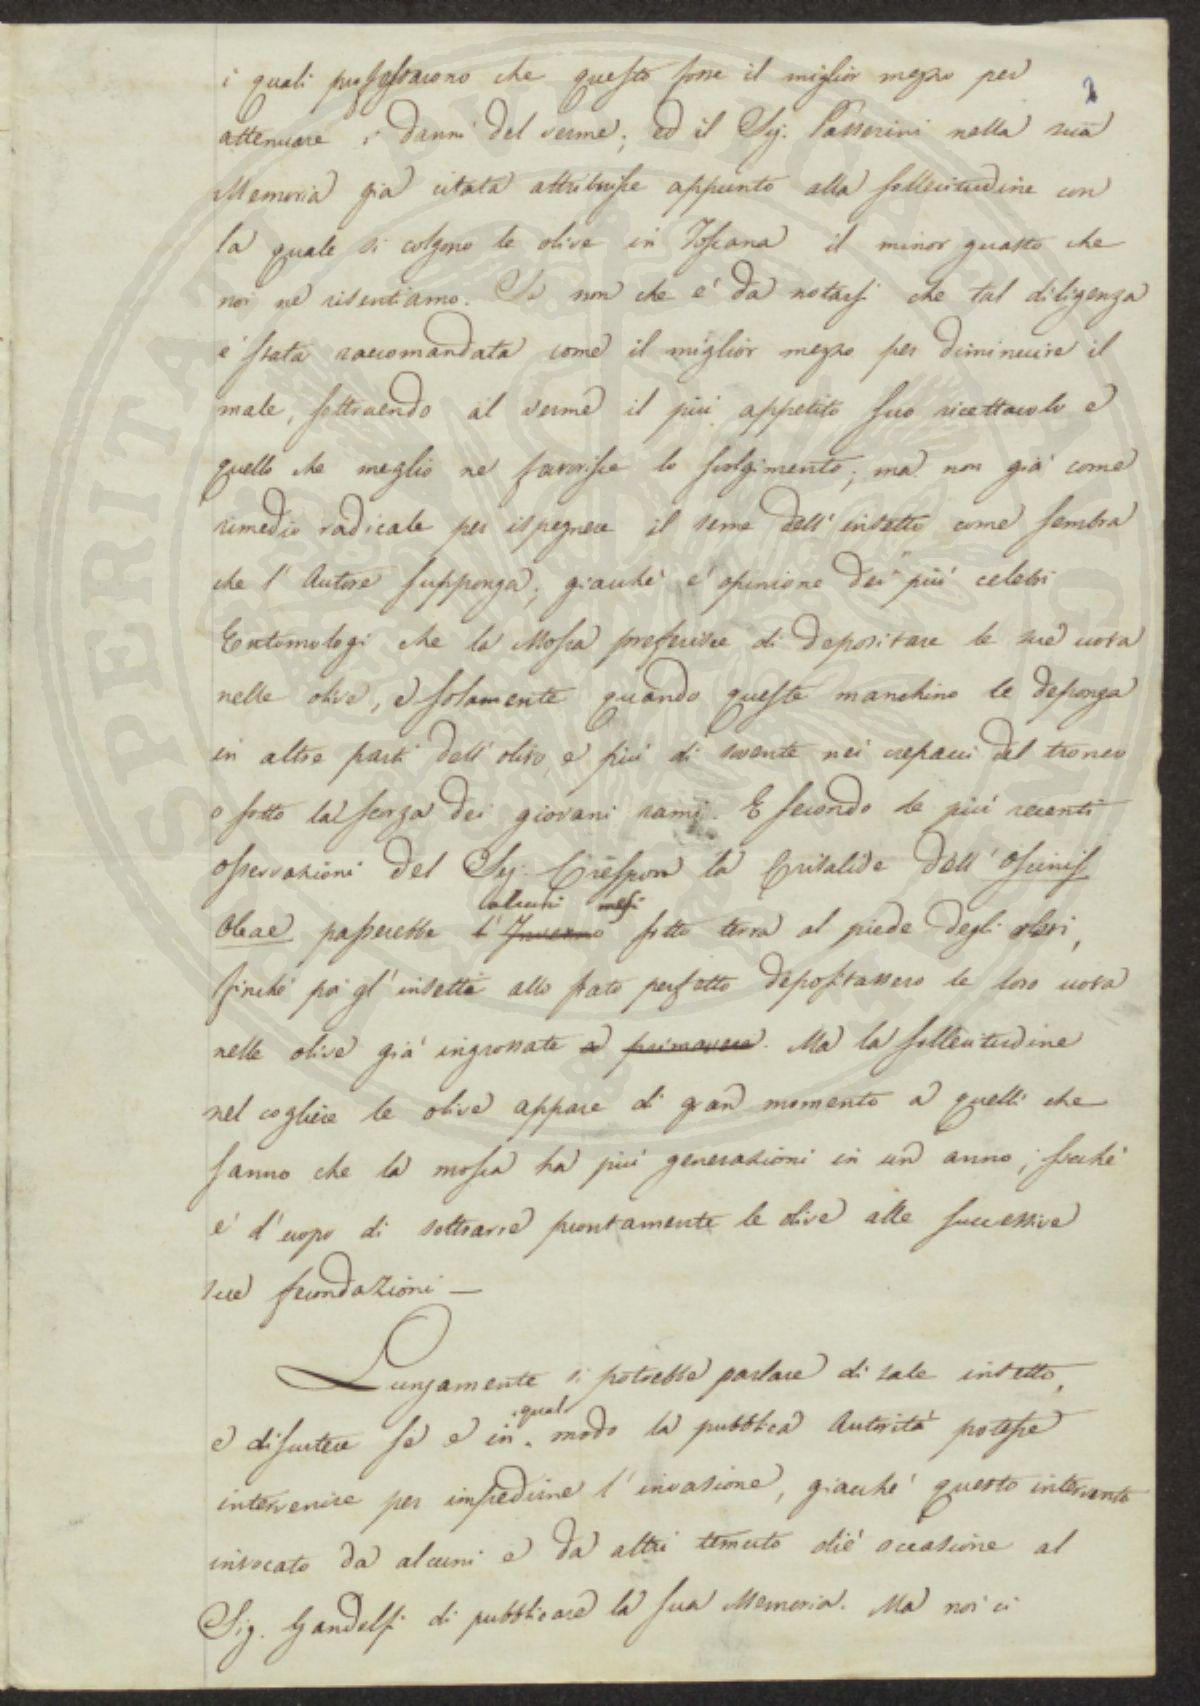 2
i quali professarono che questo fosse il miglior mezzo per
attenuare i danni del verme; ed il Sig. Passerini nella sua
Memoria già citata attribuisce appunto alla sollecitudine con
la quale si colgono le olive in Toscana il minor guasto che
noi ne risentiamo. Se non che è da notarsi che tal diligenza
è stata raccomandata come il miglior mezzo per diminuire il
male, sottraendo al verme il più appetito suo ricettacolo e
quello che meglio ne favorisce lo svolgimento; ma non già come
rimedio radicale per ispegnere il seme dell'insetto come sembra
che l'Autore supponga; giacchè è opinione dei più celebri
Entomologi che la Mosca preferisce di depositare le sue uova
nelle olive, e solamente quando queste manchino le deponga
in altre parti dell'olivo, e più di sovente nei crepacci del tronco
o sotto la scorza dei giovani rami. E secondo le più recenti
osservazioni del Sig. Crespon la Crisalide dell'Oscinis
alcuni mesi
Oleae passerebbe l'Inverno sotto terra al piede degli olivi,
finchè poi gl'insetti allo stato perfetto depositassero le loro uova
nelle olive già ingrossate a primavera. Ma la sollecitudine
nel cogliere le olive appare di gran momento a quelli che
sanno che la mosca ha più generazioni in un anno; sicchè
è d'uopo di sottrarre prontamente le olive alle successive
sue fecondazioni —
Lungamente si potrebbe parlare di tale insetto,
qual
e discutere se e in modo la pubblica Autorità potesse
intervenire per impedirne l'invasione, giacchè questo intervento
invocato da alcuni e da altri temuto diè occasione al
Sig. Gandolfi di pubblicare la sua Memoria. Ma noi ci
SPERITATI PVBLICAE